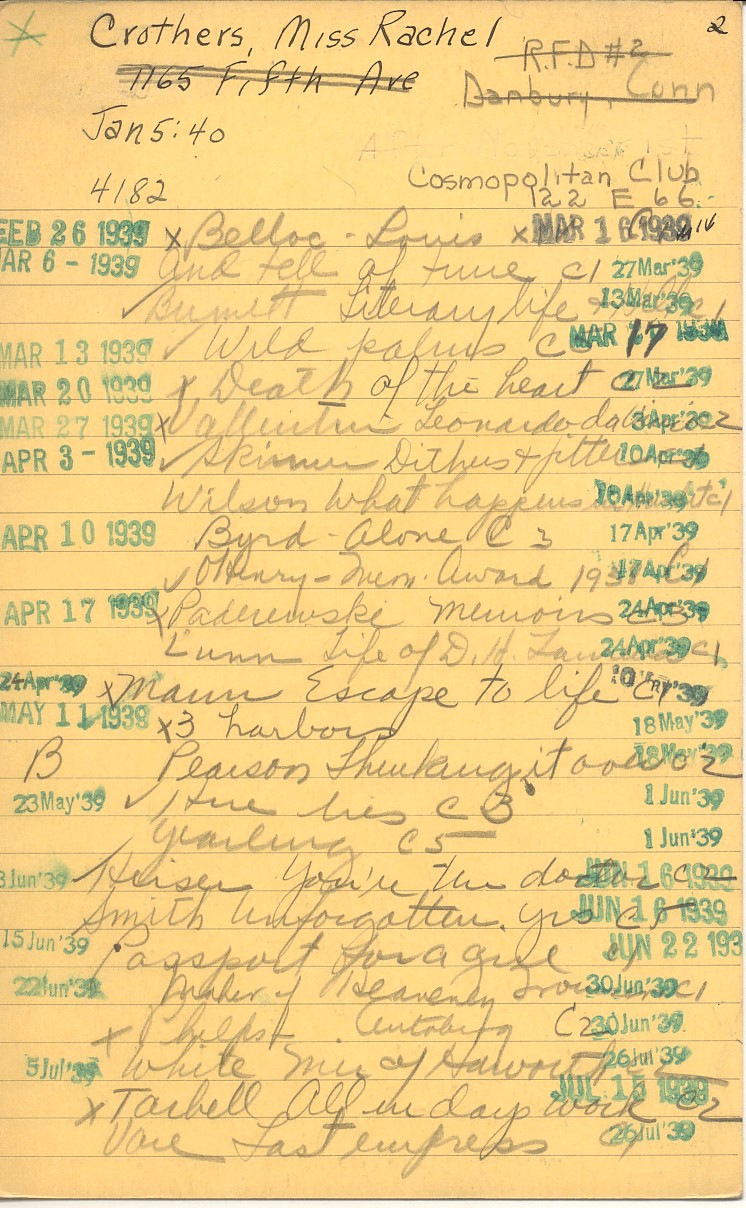 Crothers, Miss Rachel 2
1165 Fifth Ave R.F.D #2
Danbury, Conn
Jan 5: 40
Cosmopolitan Club
4182 122 E 66.
FEB 26 1939 x Belloc - Louis x MAR 16 1939
MAR 6 - 1939 And tell of time C1 27 Mar '39
✓ Burnett Literary life 13 Mar '39
MAR 13 1939 ✓ Wild palms MAR 17 1939
MAR 20 1939 x Death of the heart C2 27 Mar '39
MAR 27 1939 x Vallentin Leonardo da 3 Apr '39
APR 3 - 1939 ✓ Skinner Dithers + jitters 10 Apr '39
Wilson What happens 10 Apr '39 C1
APR 10 1939 Byrd - Alone C 3 17 Apr '39
✓ OHenry - Mem. Award 193 17 Apr '39
APR 17 1939 x Paderewski Memoirs C3 24 Apr '39
Life of D. H. 24 Apr '39 C1
24 Apr '39 x Mann Escape to life C1
MAY 11 1939 x 3 harbors 18 May '39
B Pearson Thinking it over C2 18 May '39
23 May '39 ✓ Here lies C 3 1 Jun '39
Yearling C5 1 Jun '39
8 Jun '39 Heiser You're the doctor C2 JUN 16 1939
Smith Unforgotten yrs JUN 16 1939
15 Jun '39 Passport for a girl JUN 22 193
22 Jun '39 Maker of Heavenly 30 Jun '39 C1
x Phelps Autobiog C2 30 Jun '39
5 Jul '39 White Mir of Haworth 26 Jul '39
x Tarbell All in days work C2 JUL 15 1939
Vare Last empress 26 Jul '39